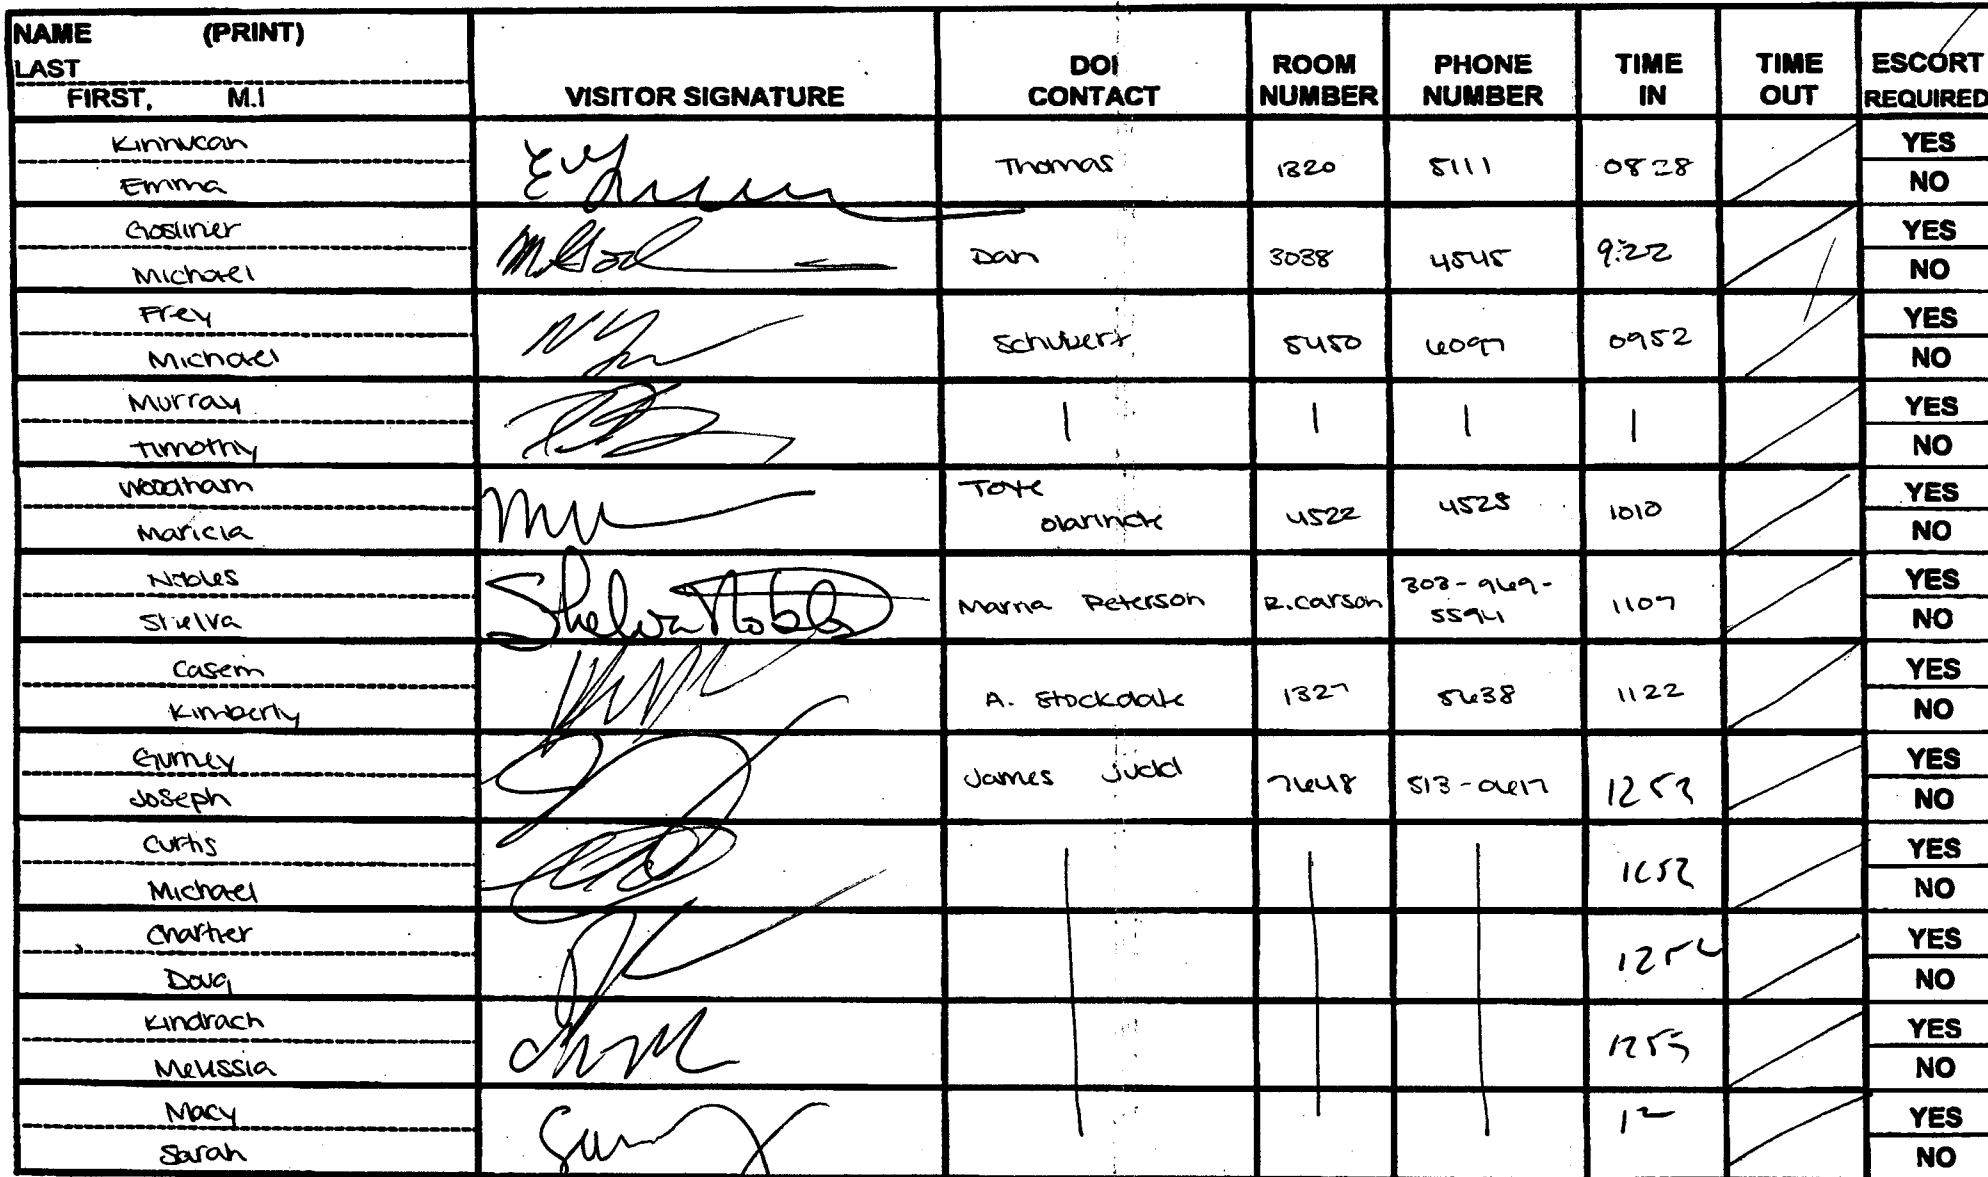 NAME (PRINT)
LAST
FIRST, M.I
VISITOR SIGNATURE
DOI CONTACT
ROOM NUMBER
PHONE NUMBER
TIME IN
TIME OUT
ESCORT REQUIRED
Kinnucan
Emma
Thomas 1320 5111 0828
YES
NO
Gosliner
Michael
Dan 3038 4545 9:22
YES
NO
Frey
Michael
Schubert 5450 6097 0952
YES
NO
Murray
Timothy
YES
NO
Woodham
Maricia
4522 4525 1010
YES
NO
Nobles
Shelva
Shelva Nobles
Marna Peterson R.Carson 303-969-
5594 1107
YES
NO
Casem
Kimberly
A. Stockdale 1327 5638 1122
YES
NO
Gurney
Joseph
James Judd 7648 513-0617 1253
YES
NO
Curtis
Michael
YES
NO
Chartier
Doug
YES
NO
Kindrach
Melissia
1255
YES
NO
Macy
Sarah
YES
NO